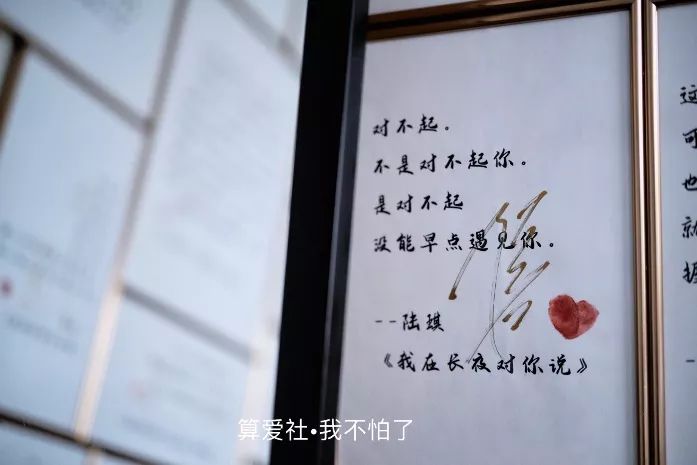 对不起。
不是对不起你。
是对不起
没能早点遇见你。
--陆琪
《我在长夜对你说》
这
可
也
就
握
算爱社·我不怕了